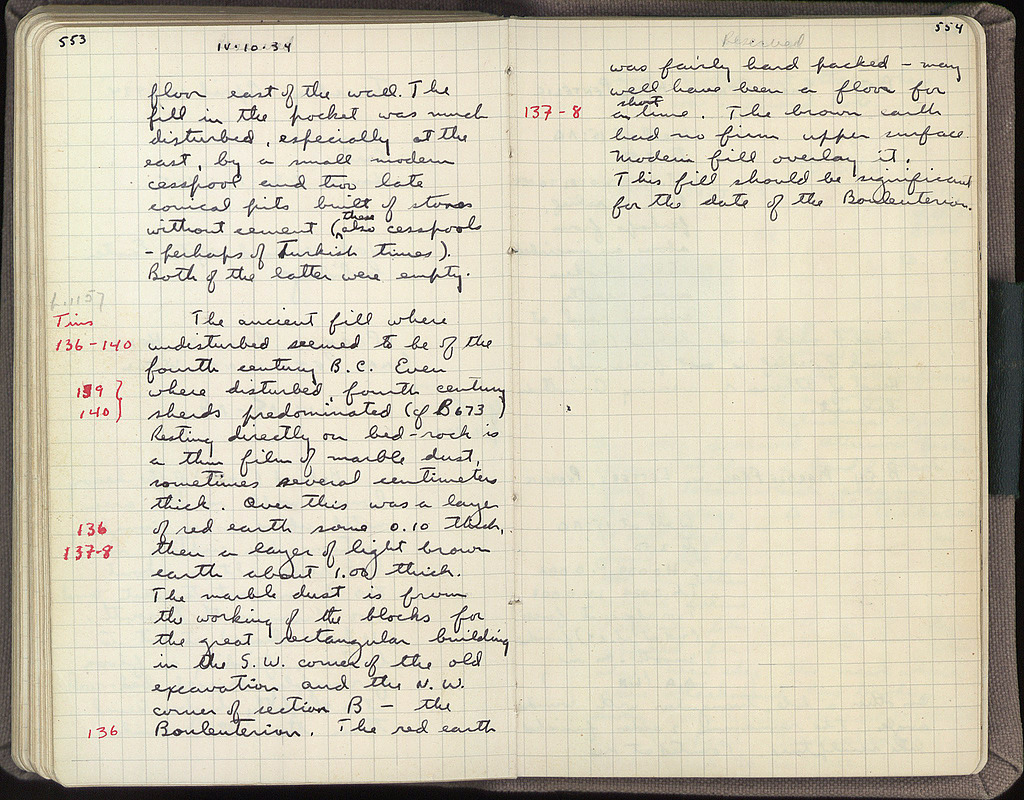 553
IV·10·34
floor east of the wall. The
fill in the pocket was much
disturbed, especially at the
east, by a small modern
cesspool and two late
conical pits built of stones
without cement (these also cesspools
- perhaps of Turkish times).
Both of the latter were empty.
L.1157
Tins The ancient fill where
136-140 undisturbed seemed to be of the
fourth century B.C. Even
139 } where disturbed, fourth century
140 } sherds predominated (cf B673)
Resting directly on bed-rock is
a thin film of marble dust,
sometimes several centimeters
thick. Over this was a layer
136 of red earth some 0.10 thick,
137-8 then a layer of light brown
earth about 1.00 thick.
The marble dust is from
the working of the blocks for
the great rectangular building
in the S.W. corner of the old
excavation and the N.W.
corner of section B - the
136 Bouleuterion. The red earth
554
Reserved
was fairly hard packed - may
well have been a floor for
137-8 a short time. The brown earth
had no firm upper surface.
Modern fill overlay it.
This fill should be significant
for the date of the Bouleuterion.